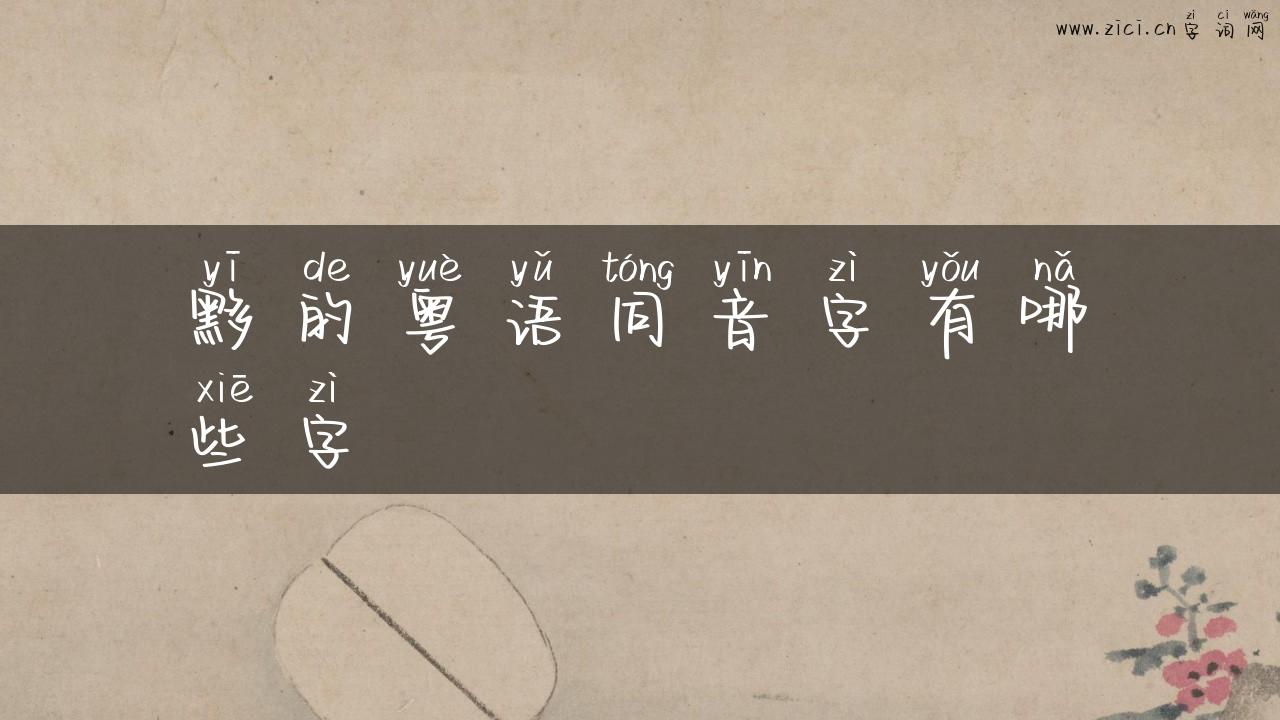 zì cí wǎng
www.zici.cn字词网
yī de yuè yǔ tóng yīn zì yǒu nǎ
黟的粤语同音字有哪
xiē zì
些字